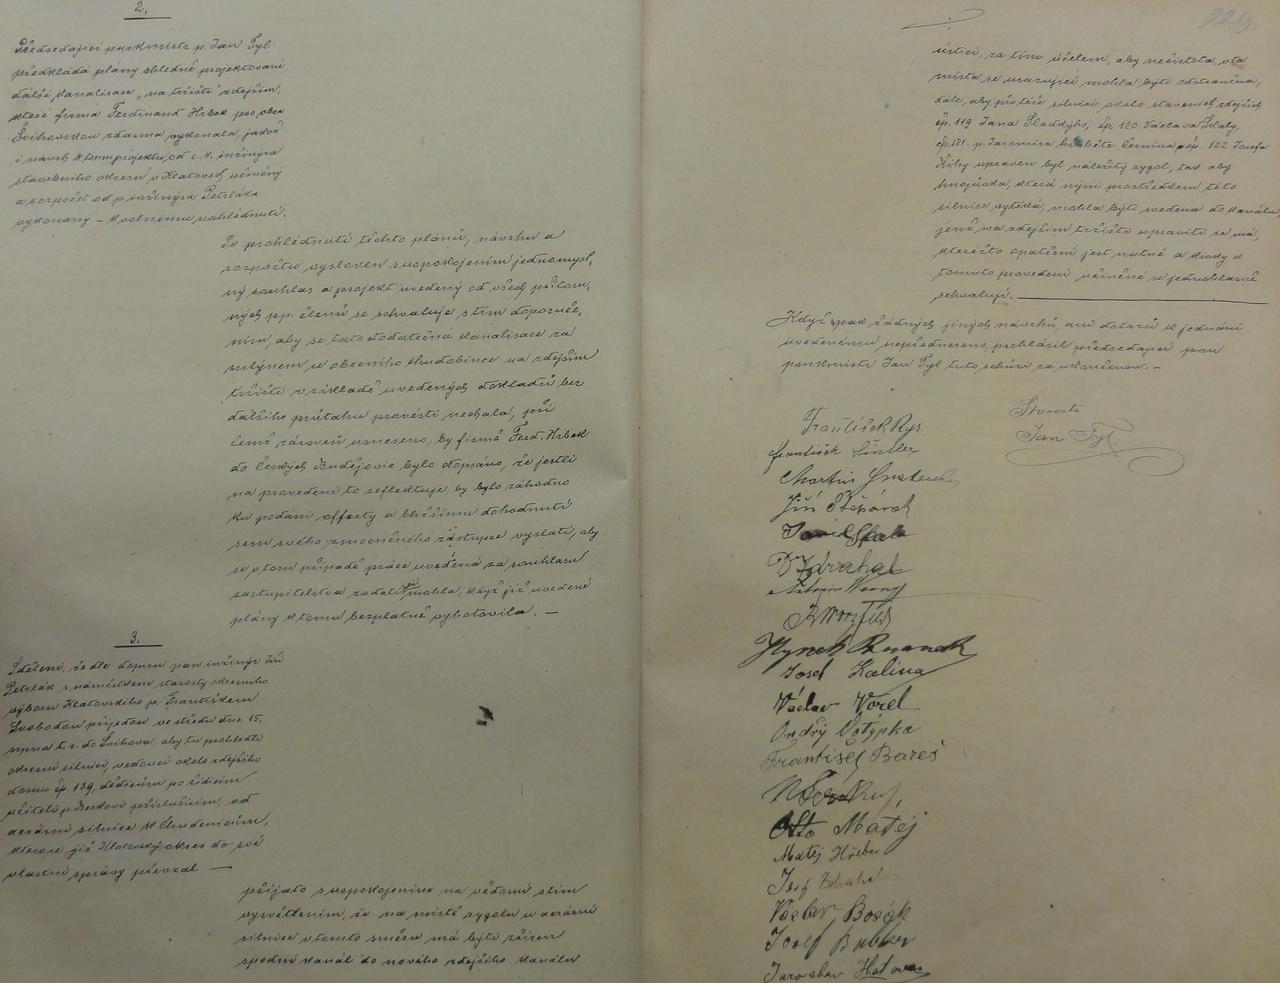 2.
Předsedající purkmistr p. Jan Tyl
předkládá plány ohledně projektované
další kanalisace „na tržišti" zdejším,
které firma Ferdinand Hrbek pro obec
Švihovskou zdarma vykonala, jakož
i návrh k tomu projektu, od c. k. inženýra
stavebního okresu v Klatovech učiněný
a rozpočet od p. inženýra Petrláka
vykonaný – k volnému nahlédnutí.
Po prohlédnutí těchto plánů, návrhu a
rozpočtu vysloven s uspokojením jednomysl,
ný souhlas a projekt uvedený od všech přítom,
ných pp. členů se schvaluje s tím doporuče,
ním, aby se tato dodatečná kanalisace za
mlýnem u obecního chudobince na zdejším
tržišti v základě uvedených dokladů bez
dalšího průtahu provésti nechala, při
čemž zároveň usneseno, by firmě Ferd. Hrbek
do Českých Budějovic bylo dopsáno, že jestli
na provedení to reflektuje, by bylo záhodno
ku podání offerty a bližšímu dohodnutí
sem svého zmocněného zástupce vyslati, aby
se v tom případě práce uvedená za souhlasu
zastupitelstva zadati mohla, když již uvedené
plány k tomu bezplatně vyhotovila. —
3.
Sdělení, že dle dopisu pan inženýr
Petrlák s náměstkem starosty okresního
výboru Klatovského p. Františkem
Svobodou přijedou ve středu dne 15.
srpna t. r. do Švihova, aby tu prohledli
okresní silnici, vedoucí okolo zdejšího
domu čp. 139, dědicům po řídícím
učiteli p. příslušícím, od
aerární silnice k Chudenicům,
kterou již Klatovský okres do své
vlastní správy převzal —
přijato s uspokojením na vědomí s tím
vysvětlením, že na místě rygolu u aerární
silnice v tomto směru má býti zřízen
spodní kanál do nového zdejšího kanálu
229.
ústící, za tím účelem, aby nečistota, v ta
místa se usazující mohla býti odstraněna,
dále, aby při téže silnici okolo stavení zdejších
čp. 119 Jana Sladkýho, čp. 120 Václava Skaly,
čp. 121. p. Jaromíra hraběte Černína a čp. 122 Josefa
Říhy upraven byl náležitý rygol, tak aby
hnojůvka, která ným prostředkem této
silnice vytéká, mohla býti svedena do kanálu,
jenž na zdejším tržišti upraviti se má,
kterežto opatření jest nutné a kroky k
tomuto provedení učiněné se jednohlasně
schvalují. —
Když pak žádných jiných návrhů, ani dotazů k jednání
uvedenému nepředneseno, prohlásil předsedající pan
purkmistr Jan Tyl tuto schůzi za ukončenou. —
Starosta
Jan Tyl
František Rys
František
Martin
Jiří Štěpánek
Skala
Dr Zdráhal
Antonín
Hynek
Josef Kalina
Václav Vorel
Ondřej Votýpka
František Bareš
Otto Matěj
Matěj Hřeben
Josef Zdráhal
Václav Bosák
Josef
Jaroslav